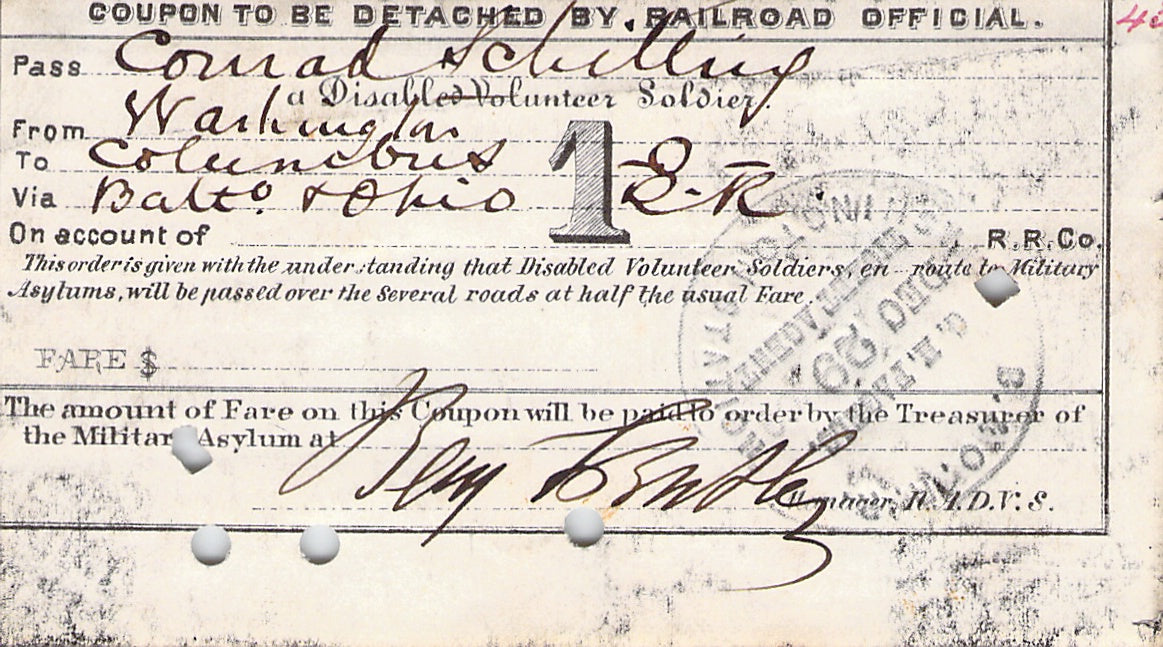 COUPON TO BE DETACHED BY RAILROAD OFFICIAL.
Pass Conrad Schilling
a Disabled Volunteer Soldier.
From Washington
To Columbus
Via Balto. & Ohio 1 R.R.
On account of R.R.Co.
This order is given with the understanding that Disabled Volunteer Soldiers, en route to Military
Asylums, will be passed over the several roads at half the usual Fare.
FARE $
The amount of Fare on this Coupon will be paid to order by the Treasurer of
the Military Asylum at
Benj F Butler
Manager, N.A.D.V.S.